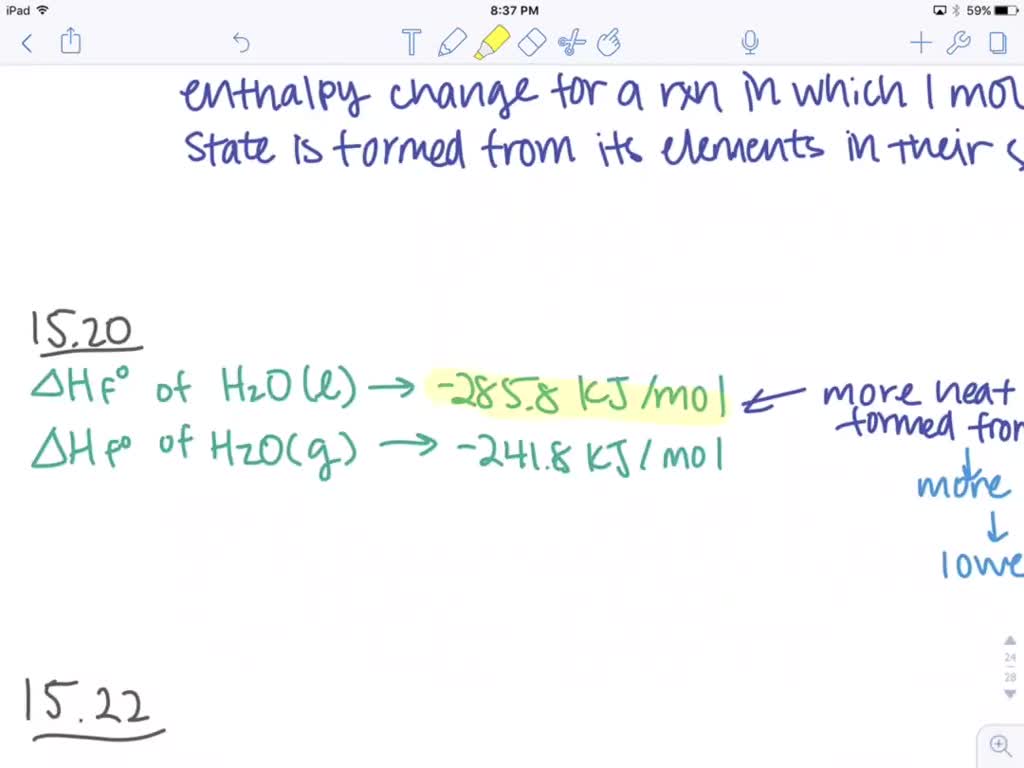 iPad 8:37 PM 59%
T
enthalpy change for a rxn in which 1 mol
state is formed from its elements in their s
15.20
ΔHf° of H2O(l) → -285.8 KJ/mol ← more heat
formed from
ΔHf° of H2O(g) → -241.8 KJ/mol
↓
more
↓
lowe
24
28
15.22